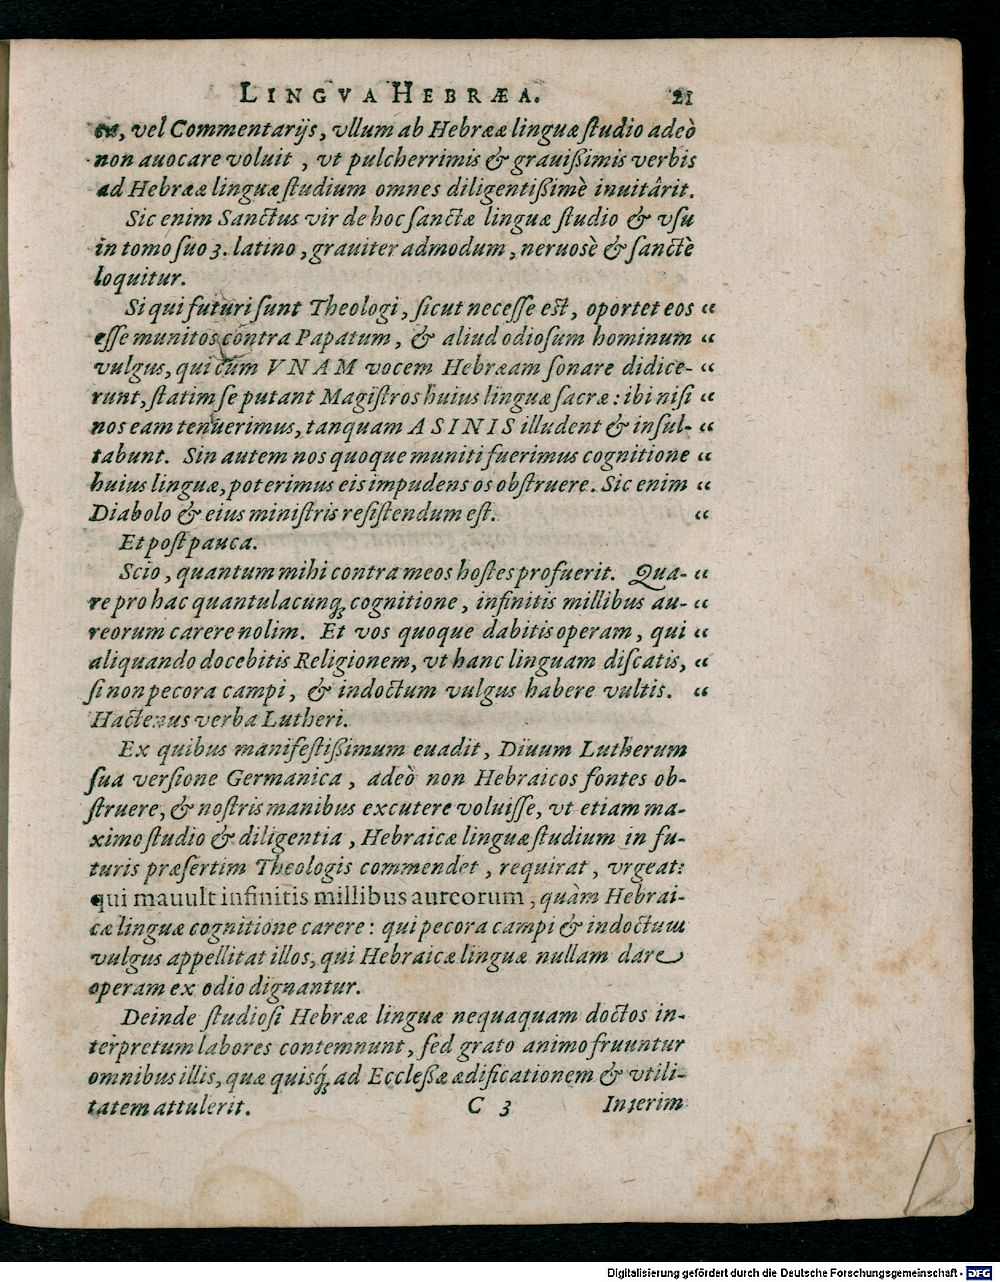 LINGVA HEBRÆA. 21
vel Commentarijs, vllum ab Hebrææ linguæ ſtudio adeò
non auocare voluit, vt pulcherrimis & grauißimis verbis
ad Hebrææ linguæ ſtudium omnes diligentißimè inuitârit.
Sic enim Sanctus vir de hoc ſanctæ linguæ ſtudio & vſu
in tomo ſuo 3. latino, grauiter admodum, neruosè & ſanctè
loquitur.
Si qui futuri ſunt Theologi, ſicut neceſſe eſt, oportet eos “
eſſe munitos contra Papatum, & aliud odioſum hominum “
vulgus, qui cùm VNAM vocem Hebræam ſonare didice- “
runt, ſtatim ſe putant Magiſtros huius linguæ ſacræ: ibi niſi “
nos eam tenuerimus, tanquam ASINIS illudent & inſul- “
tabunt. Sin autem nos quoque muniti fuerimus cognitione “
huius linguæ, poterimus eis impudens os obſtruere. Sic enim “
Diabolo & eius miniſtris reſiſtendum eſt. “
Et poſt pauca.
Scio, quantum mihi contra meos hoſtes profuerit. Qua- “
re pro hac quantulacunq́; cognitione, infinitis millibus au- “
reorum carere nolim. Et vos quoque dabitis operam, qui “
aliquando docebitis Religionem, vt hanc linguam diſcatis, “
ſi non pecora campi, & indoctum vulgus habere vultis. “
Hactenus verba Lutheri.
Ex quibus manifeſtißimum euadit, Diuum Lutherum
ſua verſione Germanica, adeò non Hebraicos fontes ob-
ſtruere, & noſtris manibus excutere voluiſſe, vt etiam ma-
ximo ſtudio & diligentia, Hebraicæ linguæ ſtudium in fu-
turis præſertim Theologis commendet, requirat, vrgeat:
qui mauult infinitis millibus aureorum, quàm Hebrai-
cæ linguæ cognitione carere: qui pecora campi & indoctum
vulgus appellitat illos, qui Hebraicæ linguæ nullam dare
operam ex odio dignantur.
Deinde ſtudioſi Hebrææ linguæ nequaquam doctos in-
terpretum labores contemnunt, ſed grato animo fruuntur
omnibus illis, quæ quisq́; ad Eccleßæ ædificationem & vtili-
tatem attulerit. C 3 Interim
Digitalisierung gefördert durch die Deutsche Forschungsgemeinschaft - DFG